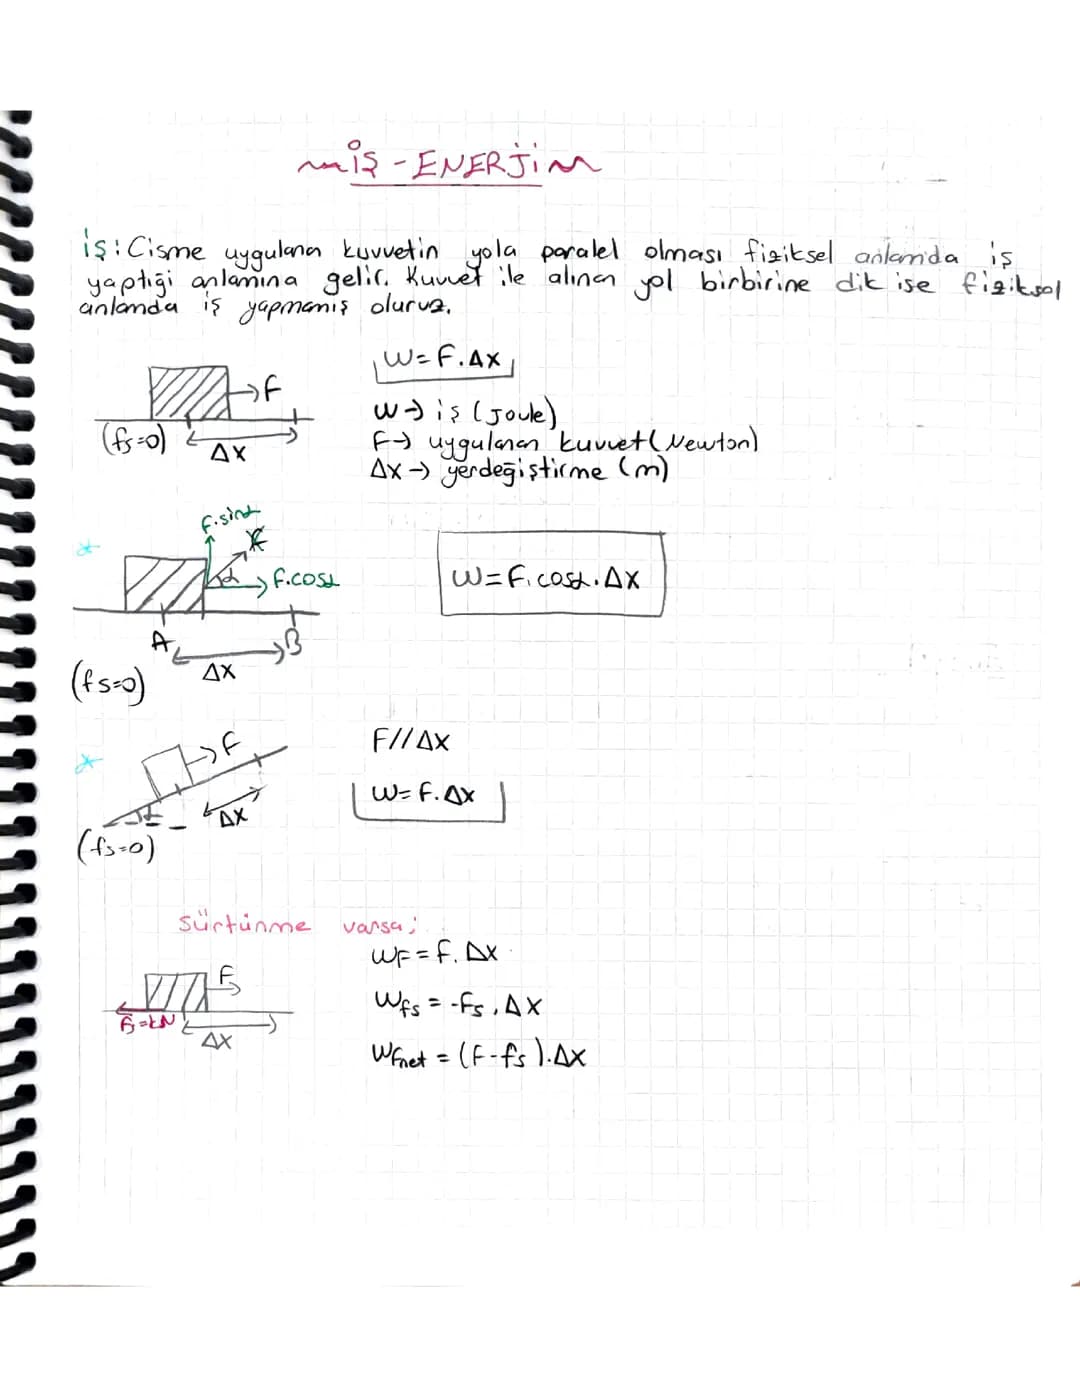 İŞ - ENERJİ
iş: Cisme uygulanan kuvvetin yola paralel olması fiziksel anlamda iş
yaptığı anlamına gelir. Kuvvet ile alınan yol birbirine dik ise fiziksel
anlamda iş yapmamış oluruz.
W=F.Δx
F
(fs=0)
Δx
W→ iş (Joule)
F→ uygulanan kuvvet (Newton)
Δx→ yerdeğiştirme (m)
F.sinα
F
α
F.cosα
W=F.cosα.Δx
A
B
Δx
(fs=0)
F
Δx
(fs=0)
F//Δx
W=F.Δx
Sürtünme varsa;
WF = F.Δx
F
fs=kN
Δx
Wfs = -Fs.Δx
WFnet = (F-fs).Δx